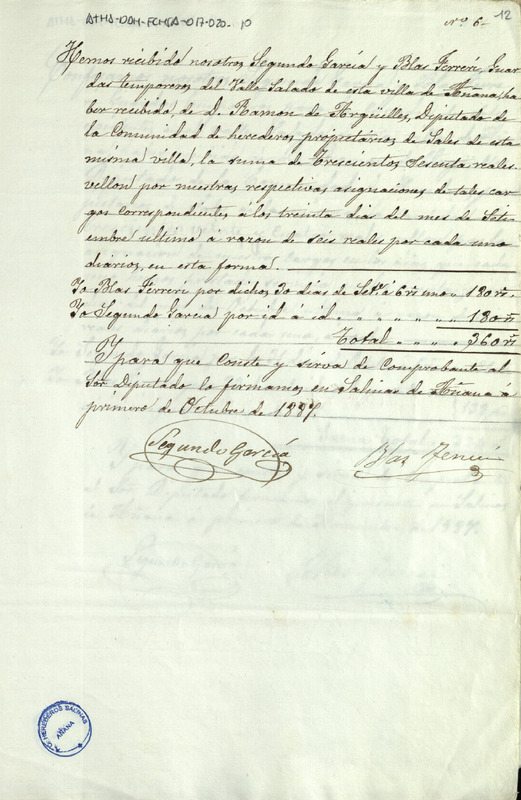 ATHA-DAH-FCHSA-017-020-10
12
Nº 6
Hemos recibido nosotros, Segundo García y Blas Ferreri, Guar
das temporeros del Valle Salado de esta villa de Añana, ha
ber recibido, de D. Ramon de Argüelles, Diputado de
la Comunidad de herederos propietarios de Sales de esta
misma villa, la suma de Trescientos Sesenta reales
vellon por nuestras respectivas asignaciones de tales car
gos correspondientes á los treinta dias del mes de Seti
embre último á razon de seis reales por cada uno
diarios, en esta forma.
Yo Blas Ferreri por dichos 30 dias de Set.e á 6 rs uno „ 180 rs.
Yo Segundo Garcia por id á id. „ „ „ „ „ 180 rs
Total „ „ „ 360 rs
Y para que conste y sirva de comprobante al
Sor. Diputado lo firmamos en Salinas de Añana á
primero de Octubre de 1887.
Segundo García
Blas Ferreri
C. HEREDEROS SALINAS
AÑANA